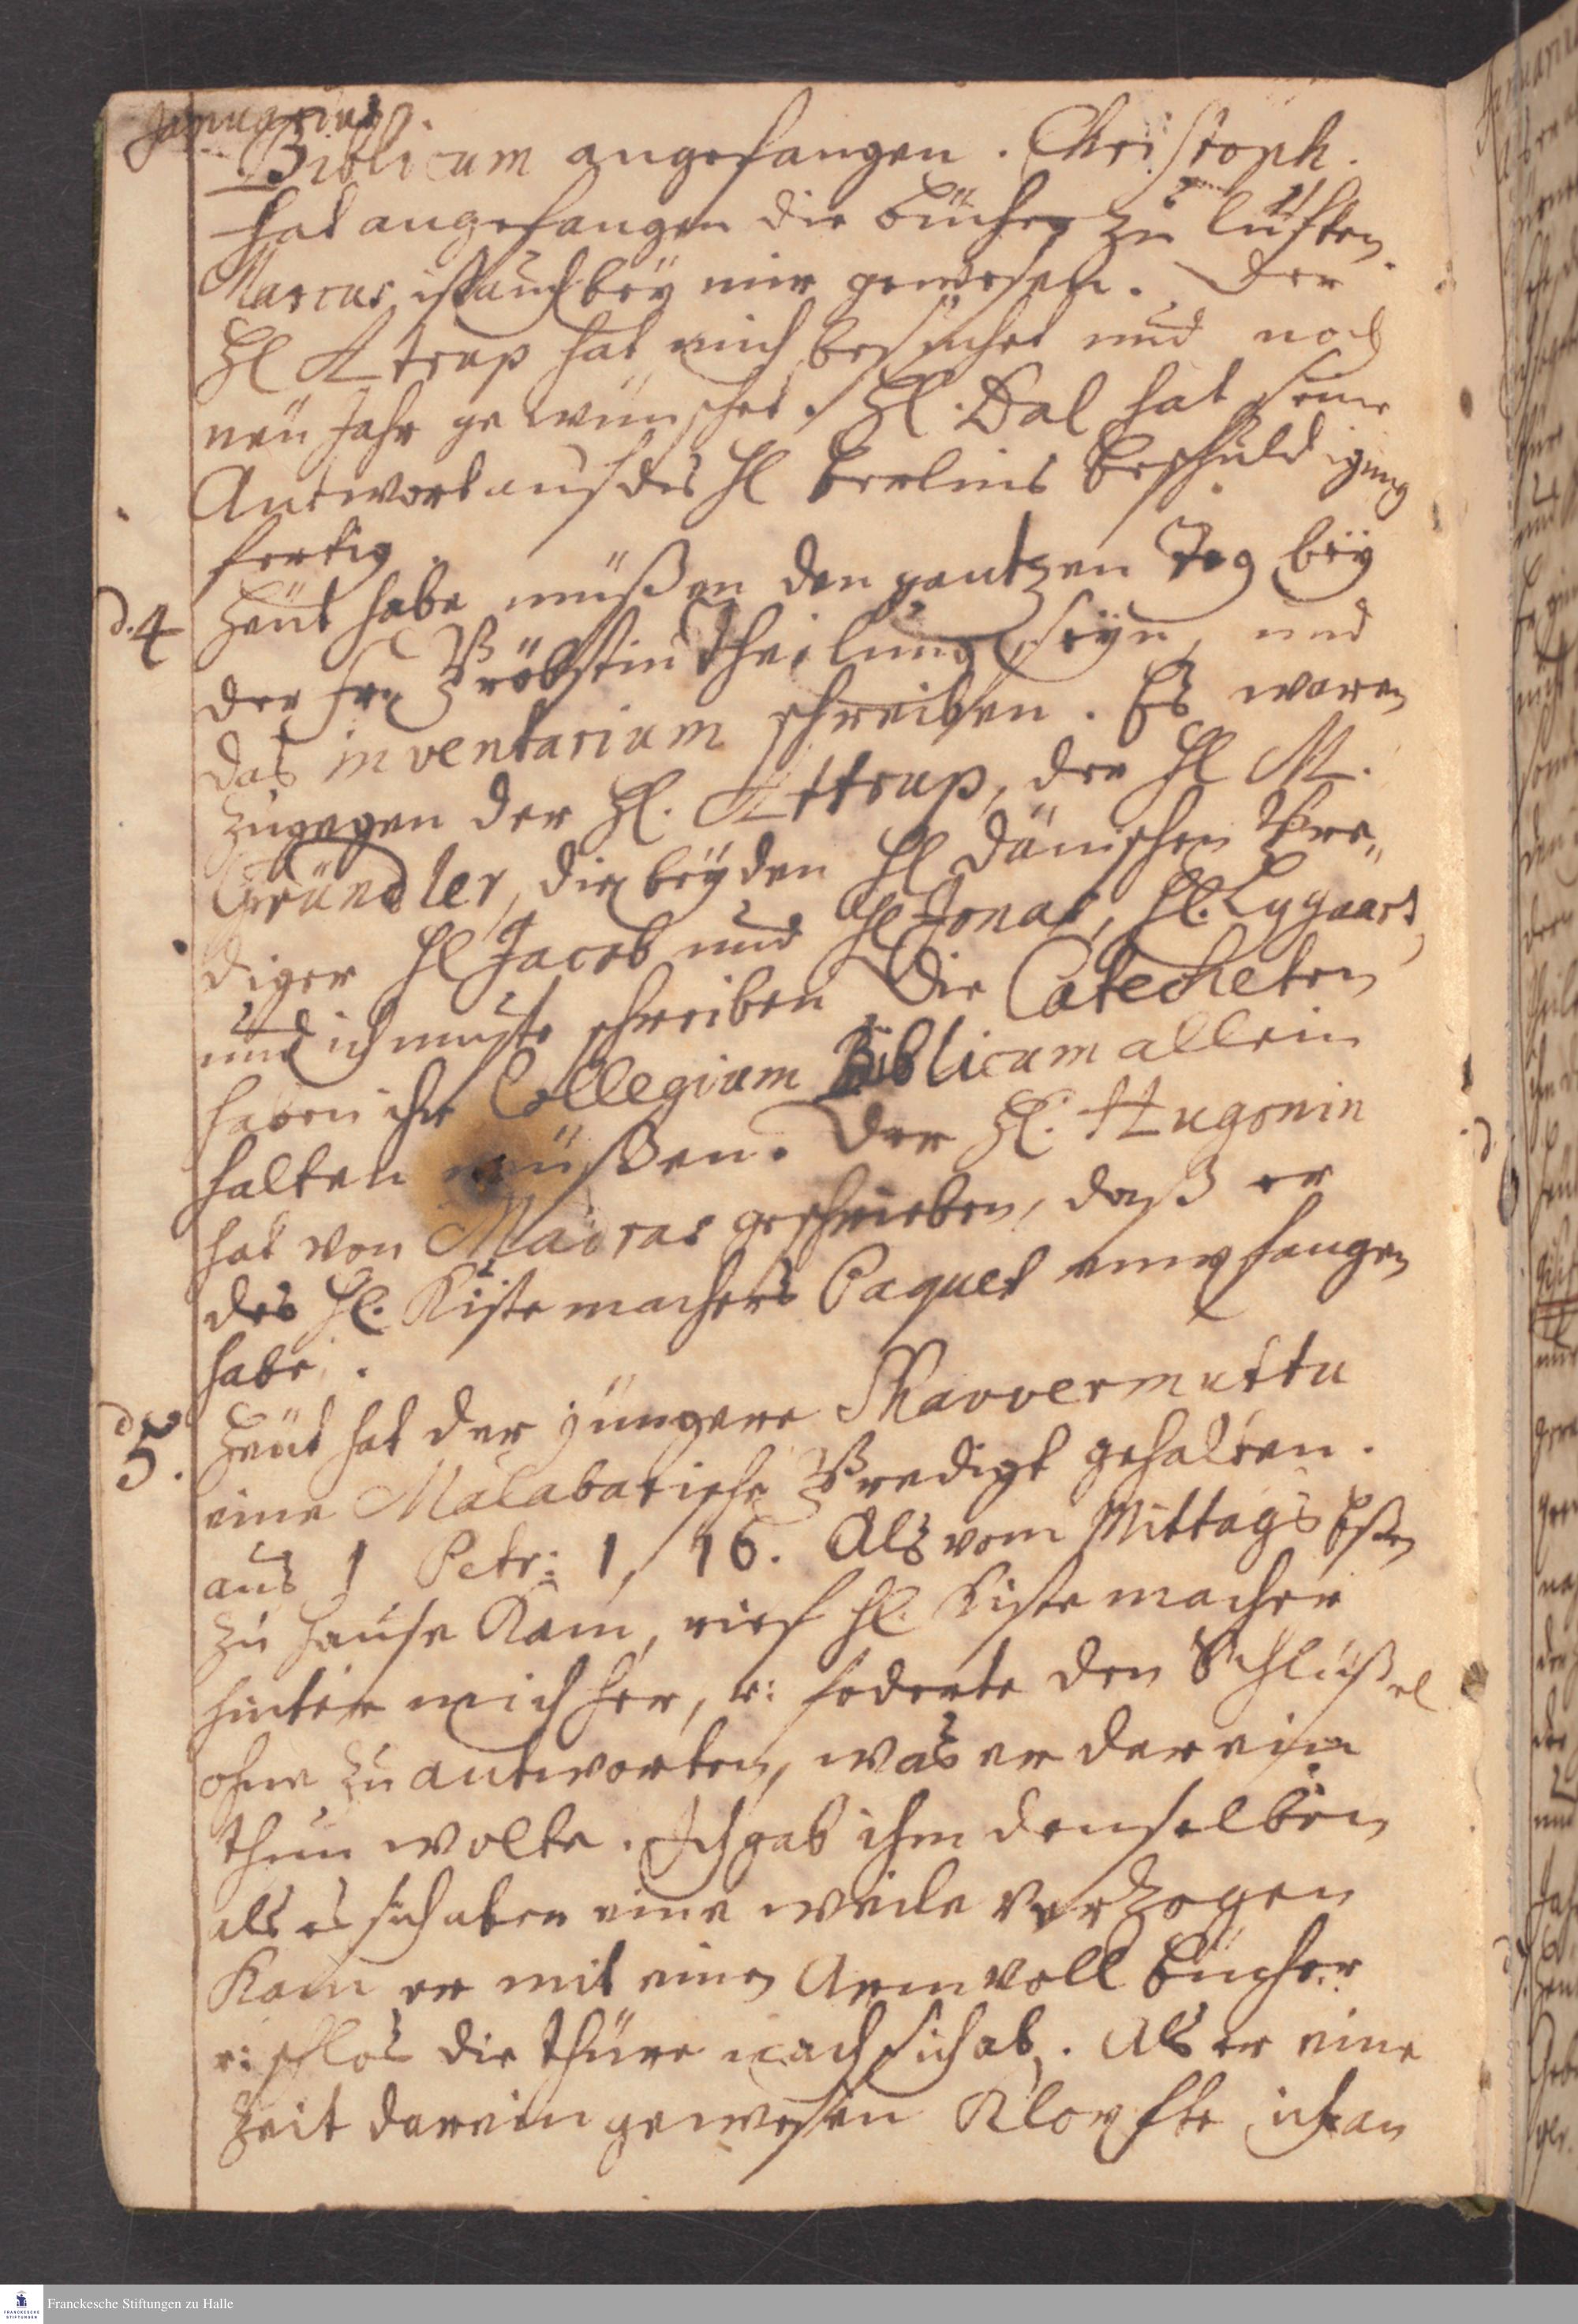 Januarius
Biblicum angefangen. Christoph.
hat angefangen die bücher zu lüften
Marcus ist auch bey mir gewesen. Der
Hl Attrup hat mich besuchet und noch
neu Jahr gewünschet. Hl. Dal hat seine
Antwort auf des Hl Berlins beschuldigung
fertig.
d. 4 Heut habe müßen den gantzen Tag bey
der Fr. Pröbstin theilung seyn, und
das inventarium schreiben. Es waren
zugegen der Hl. Attrup, der Hl M.
Gründler, die beyden Hl Dänischen Pre„
diger Hl Jacob und Hl Jonas, Hl. Lygaard,
und ich muste schreiben. Die Catecheten
haben ihr Collegium Biblicum allein
halten müßen. Der Hl. Hugonin
hat von Madras geschrieben, daß er
des Hl. Kistemachers Paquet empfangen
habe.
d 5. Heut hat der jüngere Schavvermuttu
eine Malabarische Predigt gehalten.
aus 1 Petr: 1, 16. Als vom Mittags Eßen
zu Hause kam, rief Hl. Kistemacher
hinter mich her, u: foderte den Schlüßel
ohne zu antworten, was er darein
thun wolte. Ich gab ihm denselben
als es sich aber eine weile verzogen
kam er mit einen Armvoll bücher
u: schlos die thüre nach sich ab. Als er eine
Zeit darein gewesen klopfte ich an
Franckesche Stiftungen zu Halle